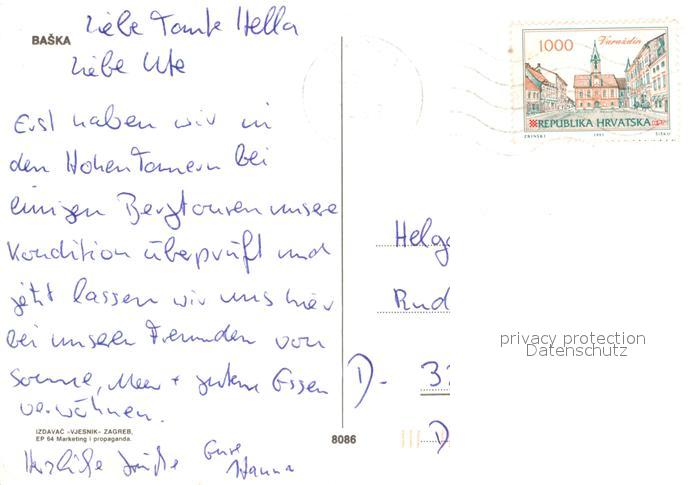 Liebe Tante Hella
BAŠKA
Liebe Ute
Erst haben wir in
den Hohen Tauern bei
einigen Bergtouren unsere
Kondition überprüft und
jetzt lassen wir uns hier
bei unseren Freunden von
Sonne, Meer + gutem Essen
verwöhnen.
IZDAVAČ «VJESNIK» ZAGREB,
EP 64 Marketing i propaganda.
Herzliche Grüße Eure
Hanna
8086
1000 Varaždin
REPUBLIKA HRVATSKA
ZRINSKI 1993
Helg
Rud
privacy protection
Datenschutz
D- 3
D